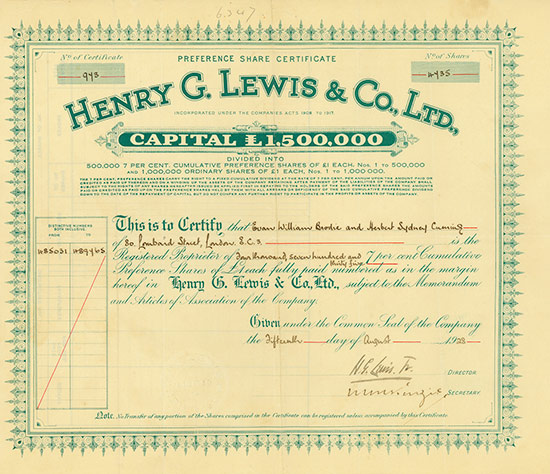 6.347
Nº of Certificate
943
PREFERENCE SHARE CERTIFICATE
Nº of Shares
4435
HENRY G. LEWIS & CO., LTD.,
INCORPORATED UNDER THE COMPANIES ACTS 1908 TO 1917
CAPITAL £1,500,000
DIVIDED INTO
500,000 7 PER CENT. CUMULATIVE PREFERENCE SHARES OF £1 EACH, Nos. 1 TO 500,000
AND 1,000,000 ORDINARY SHARES OF £1 EACH, Nos. 1 TO 1,000,000.
DISTINCTIVE NUMBERS
BOTH INCLUSIVE
FROM TO
485031 489465
This is to Certify that Evan William Brodie and Herbert Sydney Cuming
of 80, Lombard Street, London. E.C.3. is the
Registered Proprietor of Four thousand, seven hundred and thirty five 7 per cent Cumulative
Preference Shares of £1 each fully paid numbered as in the margin
hereof in Henry G. Lewis & Co., Ltd., subject to the Memorandum
and Articles of Association of the Company.
Given under the Common Seal of the Company
the Fifteenth day of August 1923
H.G. Lewis, Jr.
DIRECTOR
SECRETARY
Note. No Transfer of any portion of the Shares comprised in the Certificate can be registered unless accompanied by this Certificate.